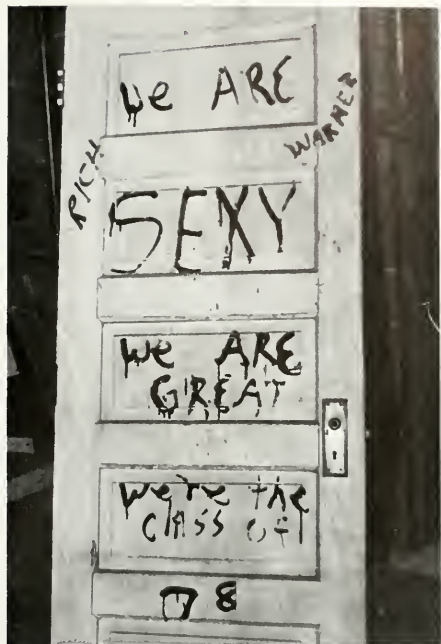 we ARE
RICH
WARNER
SEXY
we ARE
GREAT
we're the
CLASS OF
78